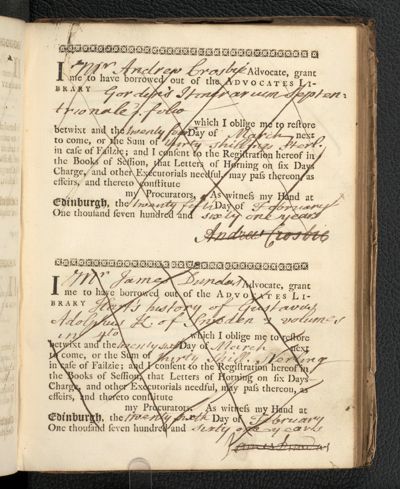 I Mr Andrew Crosbie Advocate, grant
me to have borrowed out of the ADVOCATES LI-
BRARY Gordon's Itinerarium Septen-
trionale. folio
which I oblige me to restore
betwixt and the twenty five Day of March next
to come, or the Sum of thirty shillings Sterl.
in case of Failzie; and I consent to the Registration hereof in
the Books of Session, that Letters of Horning on six Days
Charge, and other Executorials needful, may pass thereon as
effeirs, and thereto constitute
my Procurators, As witness my Hand at
Edinburgh, the twenty fifth Day of February
One thousand seven hundred and sixty one years
Andrew Crosbie
I Mr James Dundas Advocate, grant
me to have borrowed out of the ADVOCATES LI-
BRARY history of Gustavus
Adolphus K. of Sweden 2 volumes
in 4to
which I oblige me to restore
betwixt and the twenty six Day of March next
to come, or the Sum of thirty Shill.
in case of Failzie; and I consent to the Registration hereof in
the Books of Session, that Letters of Horning on six Days
Charge, and other Executorials needful, may pass thereon, as
effeirs, and thereto constitute
my Procurators. As witness my Hand at
Edinburgh, the twenty sixth Day of February
One thousand seven hundred and sixty one years